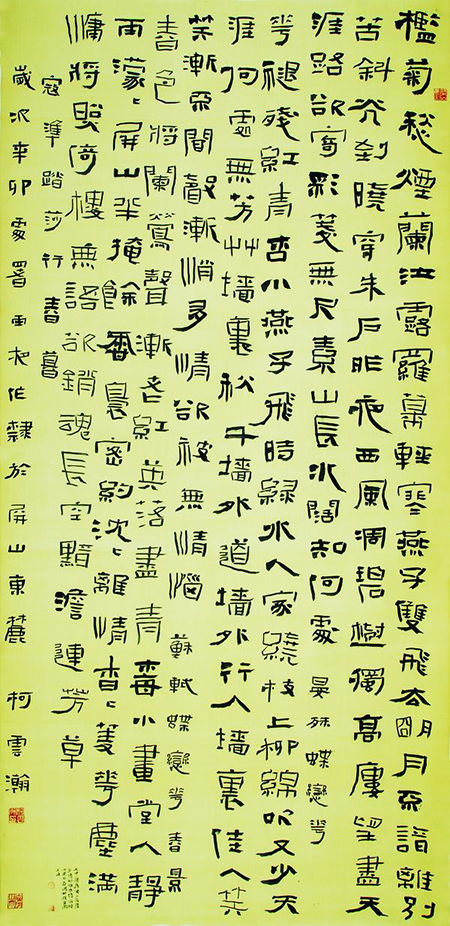 檻菊愁煙蘭泣露羅幕輕寒燕子雙飛去朙月不諳離別
苦斜光到曉穿朱戶昨夜西風凋碧樹獨高廔望盡天
涯路欲寄彩箋無尺素山長水闊知何處 晏殊蝶戀花
花褪殘紅青杏小燕子飛時綠水人家繞枝上柳綿吹又少天
涯何處無芳艸墻裏秋千墻外道墻外行人墻裏佳人笑
笑漸不聞聲漸悄多情欲被無情惱 蘇軾蝶戀花春景
春色將闌鶯聲漸老紅英落盡青梅小畫堂人靜
雨濛〻屏山半掩餘香裊密約沈〻離情杳〻菱花塵滿
慵將照倚樓無語欲銷魂長空黯澹連芳草
寇準踏莎行春暮
歲次辛卯處暑雨夜作隸於屏山東麓 柯雲瀚